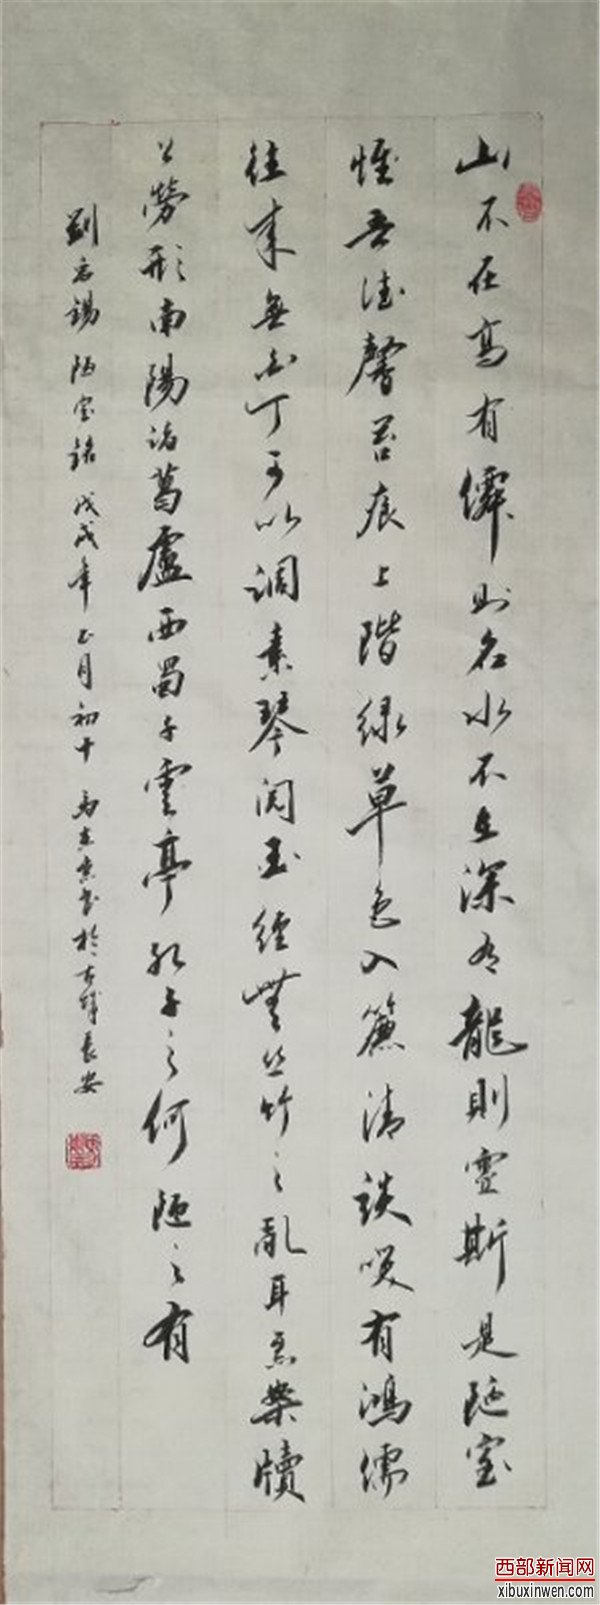 山不在高有僊則名水不在深有龍則靈斯是陋室
惟吾德馨苔痕上階綠草色入簾清談咲有鴻儒
往來無白丁可以調素琴閱玉經無絲竹之亂耳無案牘
之勞形南陽諸葛廬西蜀子雲亭孔子云何陋之有
劉禹錫 陋室銘 戊戌年正月初十 馬 書於古城長安
西部新闻网
xibuxinwen.com